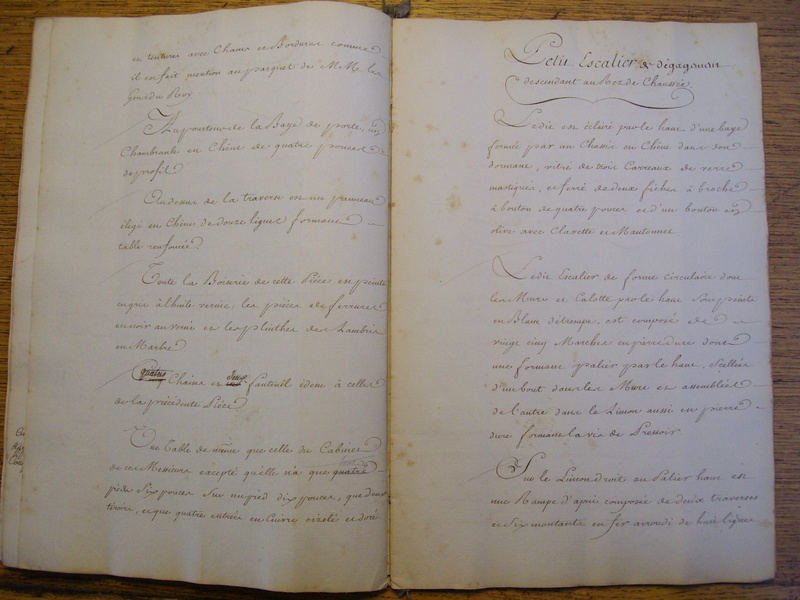 en tenture avec Chams et Bordures comme
il en fait mention au parquet de M.M. les
Gens du Roy.
Au pourtour de la Baye de porte, un
Chambranle en Chêne de quatre pouces
de profil
Au dessus de la traverse est un panneau
élégi en Chêne de douze lignes formant
table renfoncée.
Toute la Boiserie de cette Pièce est peinte
en gris à l'huile vernie, les pièces de ferrures
en noir au vernis et les plinthes des Lambris
en Marbre
quatre Chaises et deux fauteuil idem à celles
de la précédente Pièce
Une Table de même que celle du Cabinet
de ces Messieurs excepté qu'elle n'a que quatre
pieds Six pouces Sur un pied dix pouces, que deux
tiroirs, et que quatre entrées en Cuivre cizelé et doré
Petit Escalier de dégagement
descendant au Rez de Chaussée.
Ledit est éclairé par le haut d'une baye
fermée par un Chassis en Chêne dans son
dormant, vitré de trois Carreaux de verre
mastiqués, et ferré de deux fiches à broche
à bouton de quatre pouces et d'un bouton en
olive avec Clavette et Mantonnet
Ledit Escalier de forme circulaire dont
les Murs et Calotte par le haut Sont peints
en Blanc détrempe, est composé de
vingt cinq Marches en pierre dure dont
une formant palier par le haut, Scellées
d'un bout dans les Murs et assemblées
de l'autre dans le Limon aussi en pierre
dure formant la vis de Pressoir
Sur le Limon droit au Palier haut est
une Rampe d'apui composée de deux traverses
et Six montants en fer arrondi de huit lignes